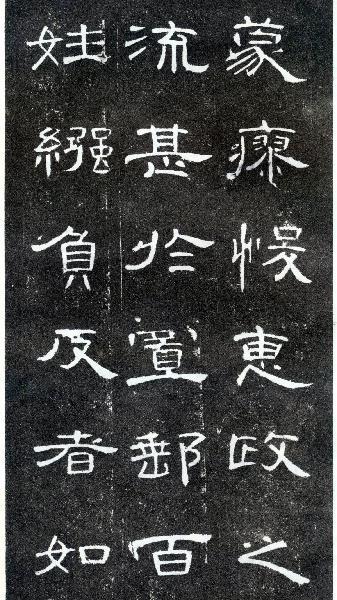 蒙瘳悛惠政之
流甚於置郵百
姓繈負反者如